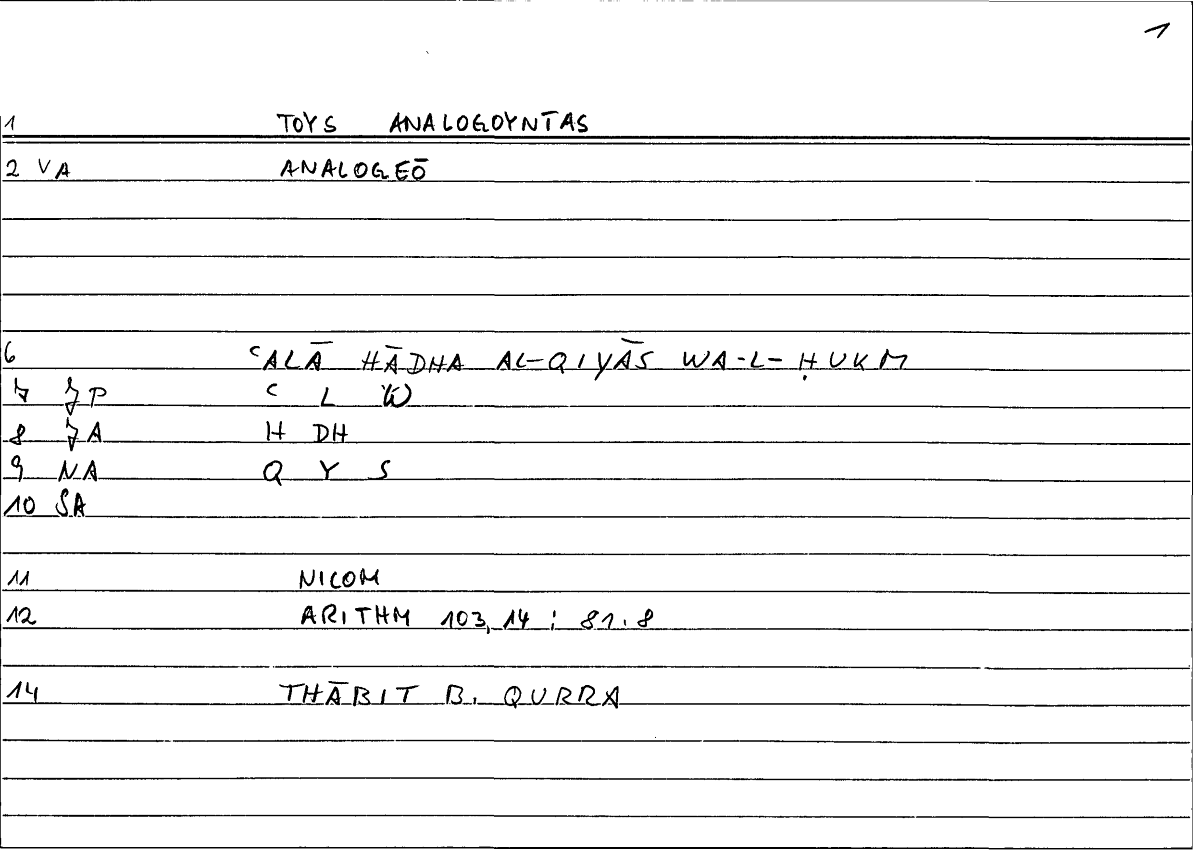 1
1 TOYS ANALOGOYNTAS
2 VA ANALOGEŌ
6 ʿALĀ HĀDHA AL-QIYĀS WA-L-ḤUKM
7 JP ʿ L W
8 JA H DH
9 NA Q Y S
10 SA
11 NICOM
12 ARITHM 103,14 ; 81.8
14 THĀBIT B. QURRA